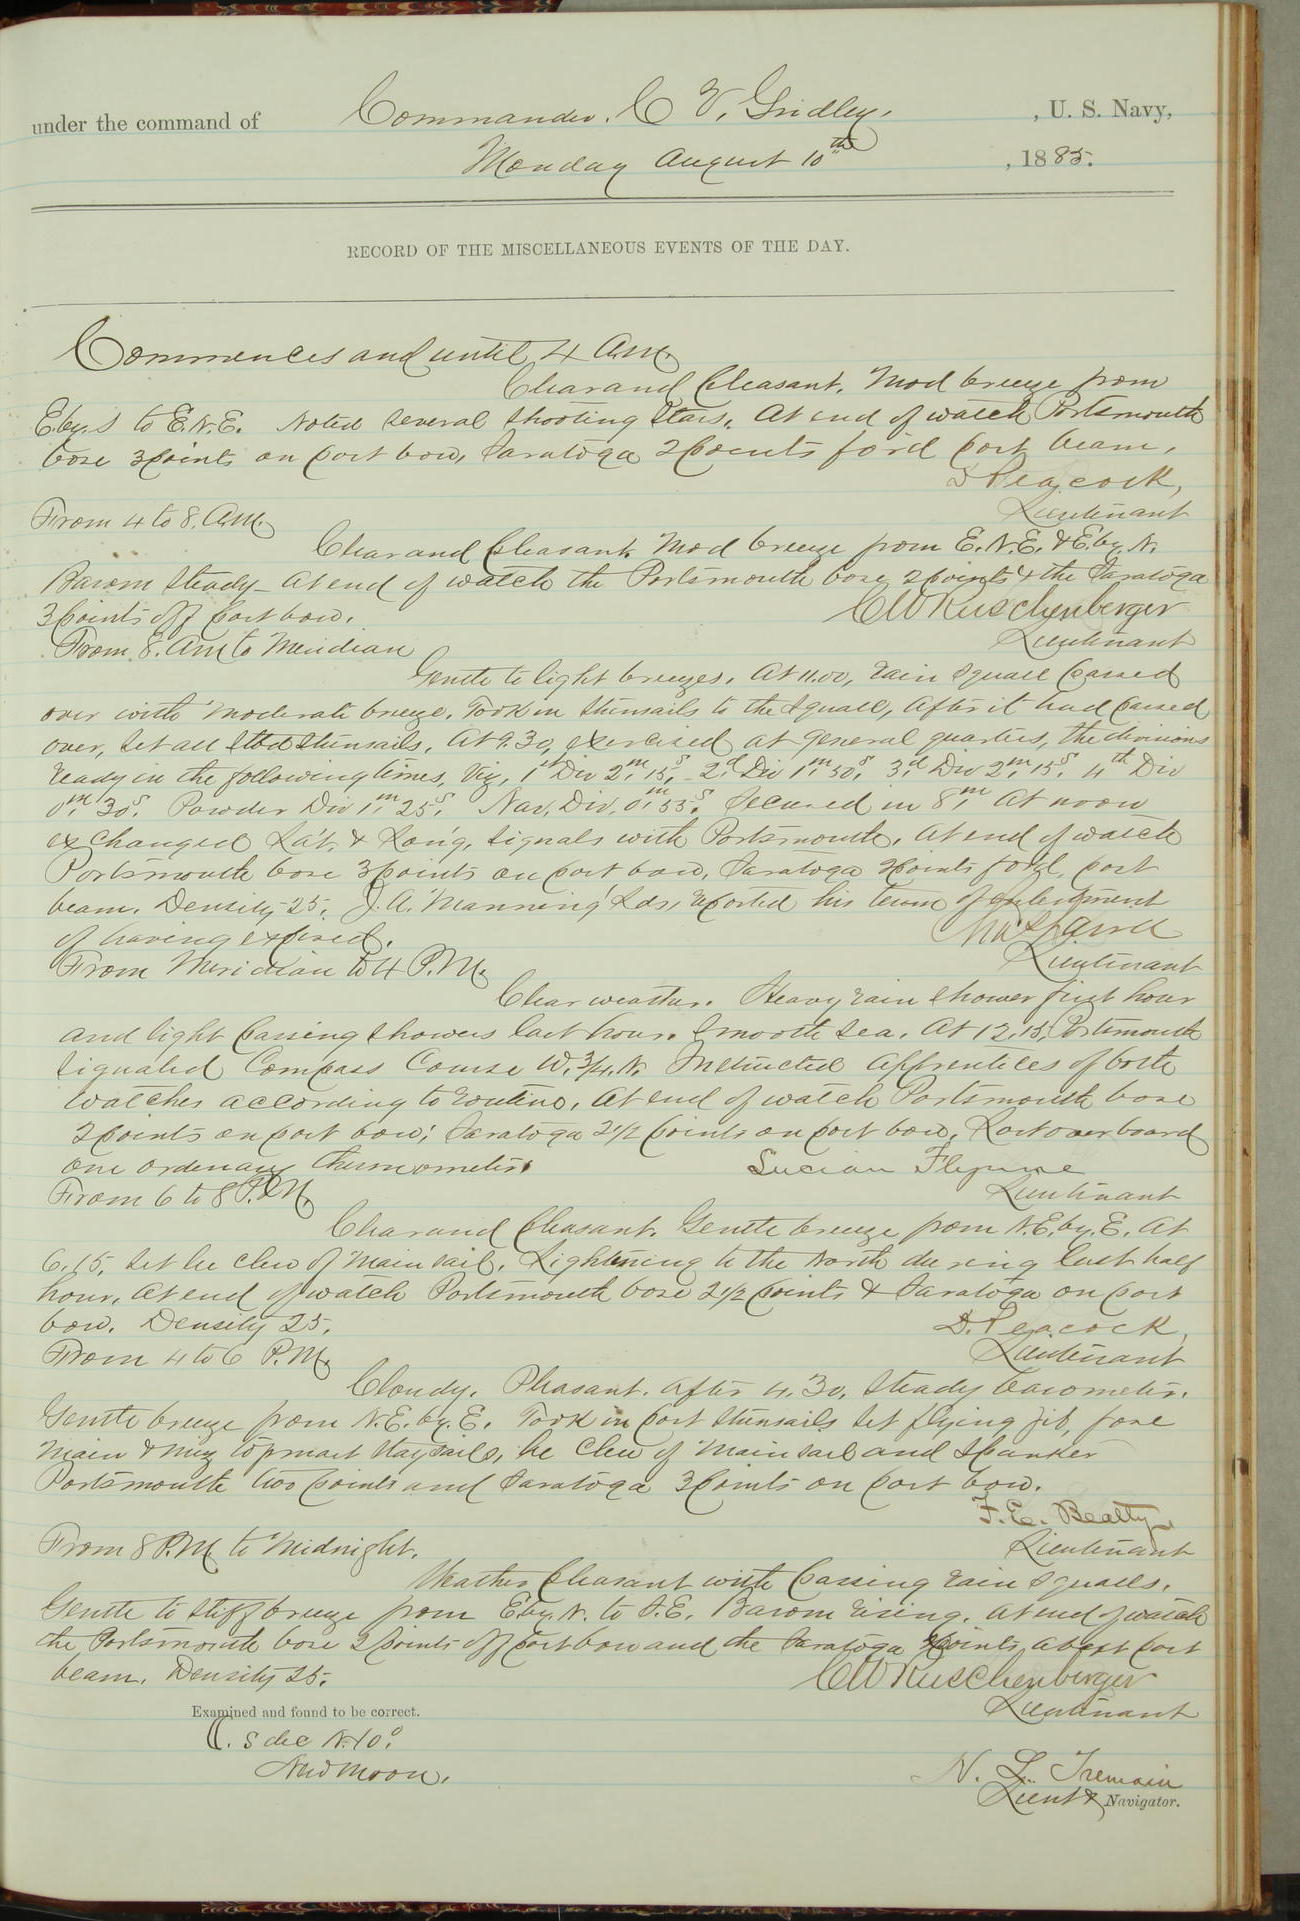 under the command of Commander. C V. Gridley. , U. S. Navy,
Monday August 10th , 1885.
RECORD OF THE MISCELLANEOUS EVENTS OF THE DAY.
Commences and until 4 A.M.
Clear and Pleasant. Mod breeze from
E.by.S to E.N.E. Noted several shooting stars. At end of watch Portsmouth
bore 3 points on port bow, Saratoga 2 points for'd port beam.
D Peacock,
Lieutenant
From 4 to 8. A.M.
Clear and Pleasant. Mod breeze from E.N.E. & E.by.N.
Barom Steady_ At end of watch the Portsmouth bore 2 points & the Saratoga
3 points off port bow.
C W Ruschenberger
Lieutenant
From 8. Am to Meridian
Gentle to light breezes. At 11.00, rain squall passed
over with moderate breeze. Took in stunsails to the squall, after it had passed
over, set all stbd stunsails. At 9.30, exercised at general quarters, the divisions
ready in the following times, Viz, 1st Div 2m 15s. 2d Div 1m 50s. 3d Div 2m 15s. 4th Div
0m 30s. Powder Div 1m 25s. Nav. Div. 0m 55s. Secured in 8m. At noon
exchanged Lat. & Long. signals with Portsmouth. At end of watch
Portsmouth bore 3 points on port bow, Saratoga 2 points for'd, port
beam. Density 25. J. A. Manning Lds, reported his term of enlistment
of having expired.
Lieutenant
From Meridian to 4 P.M.
Clear weather. Heavy rain shower first hour
and light passing showers last hour. Smooth sea. At 12.15, Portsmouth
signaled Compass Course W. 3/4. N. Instructed apprentices of both
watches according to routine. At end of watch Portsmouth bore
2 points on port bow; Saratoga 2 1/2 points on port bow. Lost overboard
one ordenary thermometer.
Lucian Flynne
Lieutenant
From 6 to 8 P.M.
Clear and Pleasant. Gentle breeze from N.E.by.E. At
6.15, set lee clew of mainsail. Lightening to the North during last half
hour. At end of watch Portsmouth bore 2 1/2 points & Saratoga on port
bow. Density 25.
D. Peacock,
Lieutenant
From 4 to 6 P.M.
Cloudy. Pleasant. After 4.30, steady barometer.
Gentle breeze from N.E. by. E. Took in port stunsails set flying jib, fore
main & miz topmast staysails, lee clew of mainsail and spanker
Portsmouth two points and Saratoga 3 points on port bow.
F. E. Beatty
Lieutenant
From 8 P.M. to Midnight.
Weather pleasant with passing rain squalls.
Gentle to stiff breeze from E.by.N. to S.E. Barom rising. At end of watch
the Portsmouth bore 2 points off port bow and the Saratoga 2 points abaft port
beam. Density 25.
C W Ruschenberger
Lieutenant
Examined and found to be correct.
☾. S dec N. 10°.
New Moon.
N. L. Tremain
Lieut & Navigator.